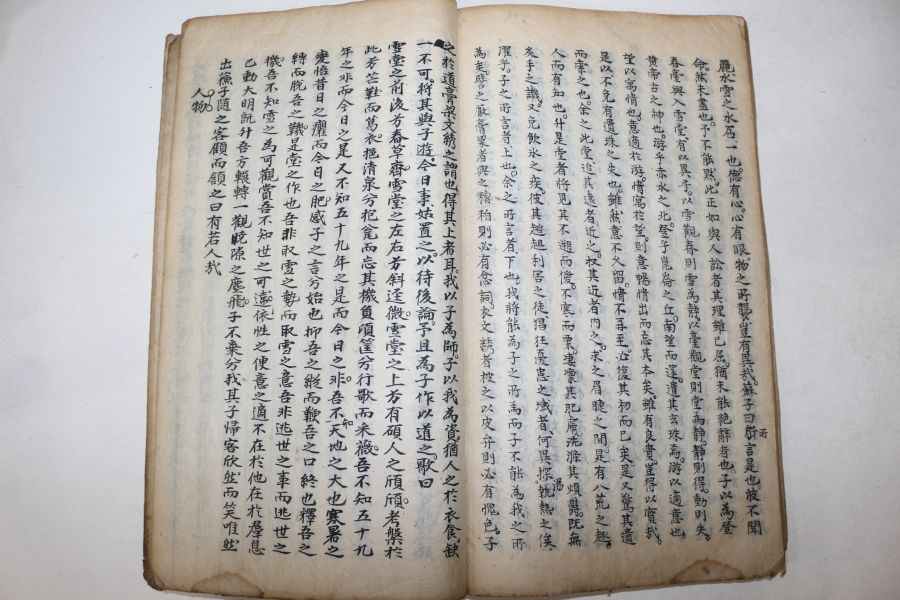 麗水雪之水石一也德有心心有眼物之所襲豈有異哉蘇子曰所言是也敢不聞
命然未盡也予不能默此正如與人訟者其理雖已屈猶未能絕辭者也子以為登
春臺與入雪堂有以異乎以雪觀春則雪為靜以臺觀堂則堂為靜靜則得動則失
黃帝古之神也游乎赤水之北登乎崑崙之丘南望而還遺其玄珠焉游以適意也
望以寓情也意適於游情寓於望則意暢情出而忘其本矣雖有良貴豈得以寶哉
是以不免有遺珠之失也雖然意不久留情不再至必復其初而已矣是又驚其遺
而索之也余之此堂追其遠者近之收其近者內之求之眉睫之間是有八荒之趣
人而有知也升是堂者將見其不遡而僾不寒而栗凄凜其肌膚洗滌其煩鬱既無
炙手之譏又免飲水之疾彼其趑趄利害之途猖狂憂患之域者何異探湯執熱之俟
濯乎子之所言者上也余之所言者下也我將能為子之所為而子不能為我之所
為矣譬之厭膏粱者與之糟粕則必有忿詞衣文綉者被之以皮弁則必有愧色子
之於道膏粱文綉之謂也得其上者耳我以子為師子以我為資猶人之於衣食缺
一不可將其與子游今日事姑置之以待後論予且為子作以道之歌曰
雪堂之前後兮春草齊雪堂之左右兮斜逕微雪堂之上方有碩人之頎頎考槃於
此兮芒鞋而葛衣挹清泉兮抱瓮而忘其機負頃筐兮行歌而采薇吾不知五十九
年之非而今日之是又不知五十九年之是而今日之非吾不知天地之大也寒暑之
變悟昔日之癯而今日之肥感子之言兮始也抑吾之縱而鞭吾之口終也釋吾之
縛而脫吾之鞿是堂之作也吾非取雪之勢而取雪之意吾非逃世之事而逃世之
機吾不知雪之為可觀賞吾不知世之可違依性之便意之適不在於他在於群息
已動大明既升吾方輾轉一觀曉隙之塵飛子不棄兮我其子歸客欣然而笑唯然
出蘇子隨之客顧而頷之曰有若人哉
人物